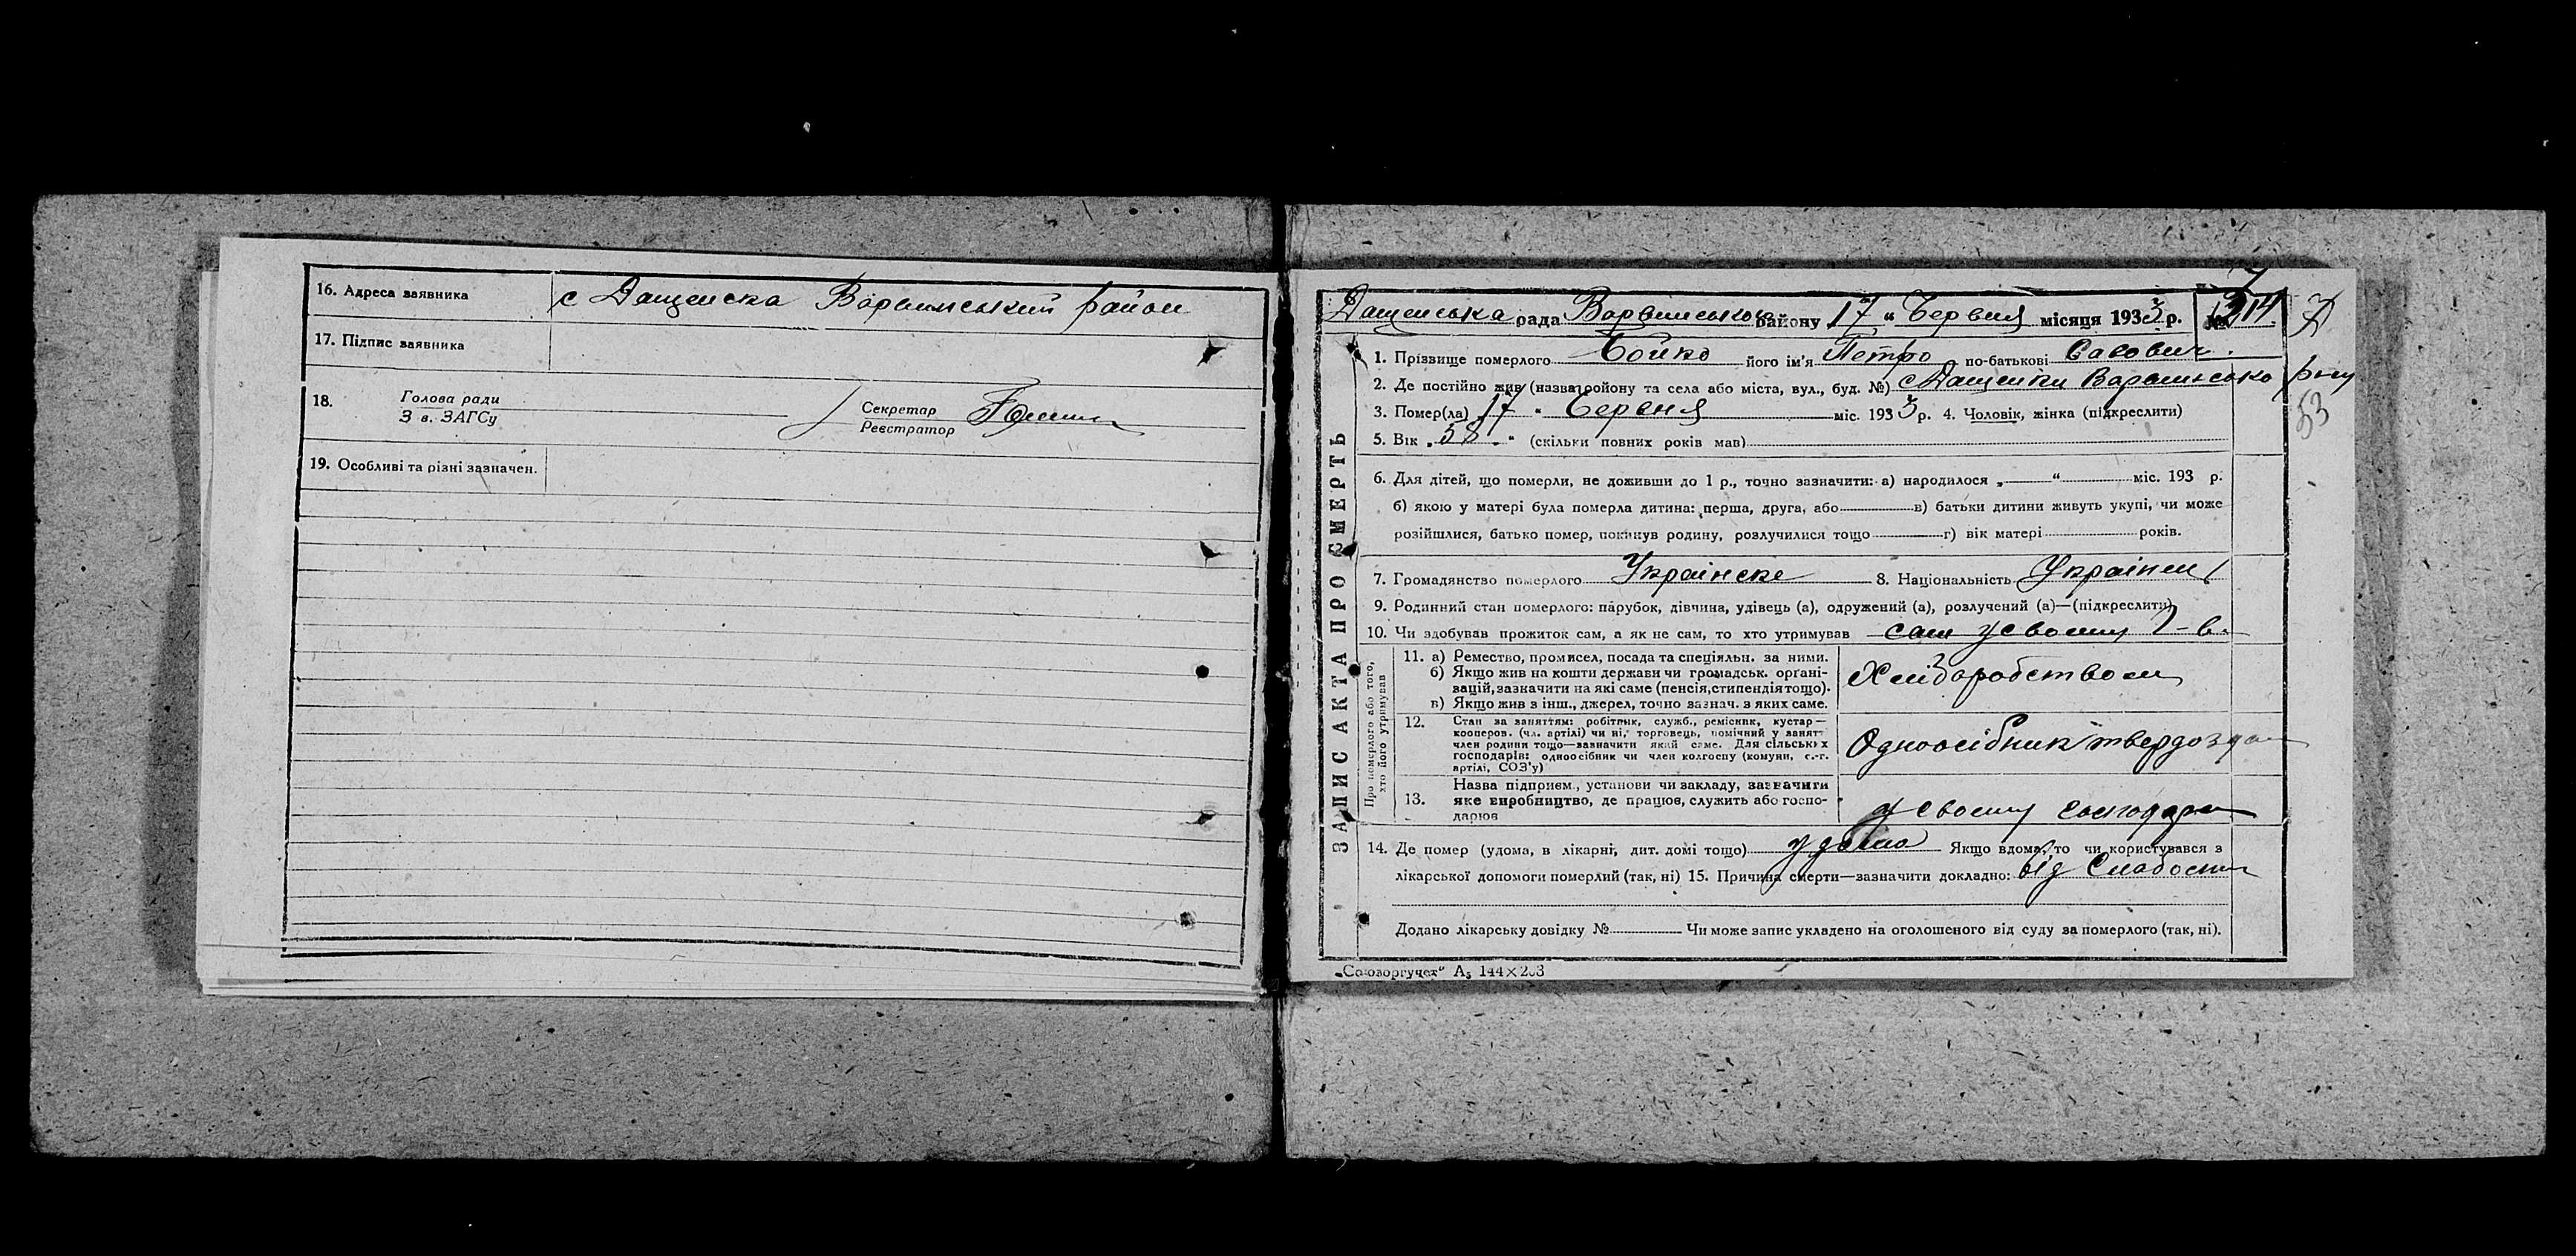 16. Адреса заявника с Дащенска Варвинський район
17. Підпис заявника
18. Голова ради
З в. ЗАГСу
Секретар
Реєстратор
19. Особливі та різні зазначен.
ЗАПИС АКТА ПРО СМЕРТЬ
Дащенська рада Варвинського району 17 " Червня місяця 1933 р. № 314
1. Прізвище померлого Бойко його ім'я Петро по-батькові Савович.
2. Де постійно жив (назва району та села або міста, вул., буд. №) с Дащенки Варвинсько р-ну
3. Помер(ла) 17 " Червня міс. 1933 р. 4. Чоловік, жінка (підкреслити)
53
5. Вік „ 58 " (скільки повних років мав)
6. Для дітей, що померли, не доживши до 1 р., точно зазначити: а) народилося „ " міс. 193 р.
б) якою у матері була померла дитина: перша, друга, або в) батьки дитини живуть укупі, чи може
розійшлися, батько помер, покинув родину, розлучилися тощо г) вік матері років.
7. Громадянство померлого Українске 8. Національність Украінец
9. Родинний стан померлого: парубок, дівчина, удівець (а), одружений (а), розлучений (а)—(підкреслити)
10. Чи здобував прожиток сам, а як не сам, то хто утримував сам у своему
Про померлого або того,
хто його утримував
11. а) Ремество, промисел, посада та спеціяльн. за ними.
б) Якщо жив на кошти держави чи громадськ. органі-
зацій, зазначити на які саме (пенсія, стипендія тощо).
в) Якщо жив з інш., джерел, точно зазнач. з яких саме.
Хліборобством
12. Стан за заняттям: робітник, служб., ремісник, кустар—
кооперов. (чл. артілі) чи ні, торговець, помічний у занят.
член родини тощо—зазначити який саме. Для сільських
господарів: одноосібник чи член колгоспу (комуни, с.-г.
артілі, СОЗ'у)
Одноосібник твердозда
13. Назва підприєм., установи чи закладу, зазначити
яке виробництво, де працюв, служить або госпо-
дарюв
у своему господар
14. Де помер (удома, в лікарні, дит. домі тощо) удома Якщо вдома, то чи користувався з
лікарської допомоги померлий (так, ні) 15. Причина смерти—зазначити докладно: від Слабости
Додано лікарську довідку № Чи може запис укладено на оголошеного від суду за померлого (так, ні).
„Союзоргучет" А₅ 144×203